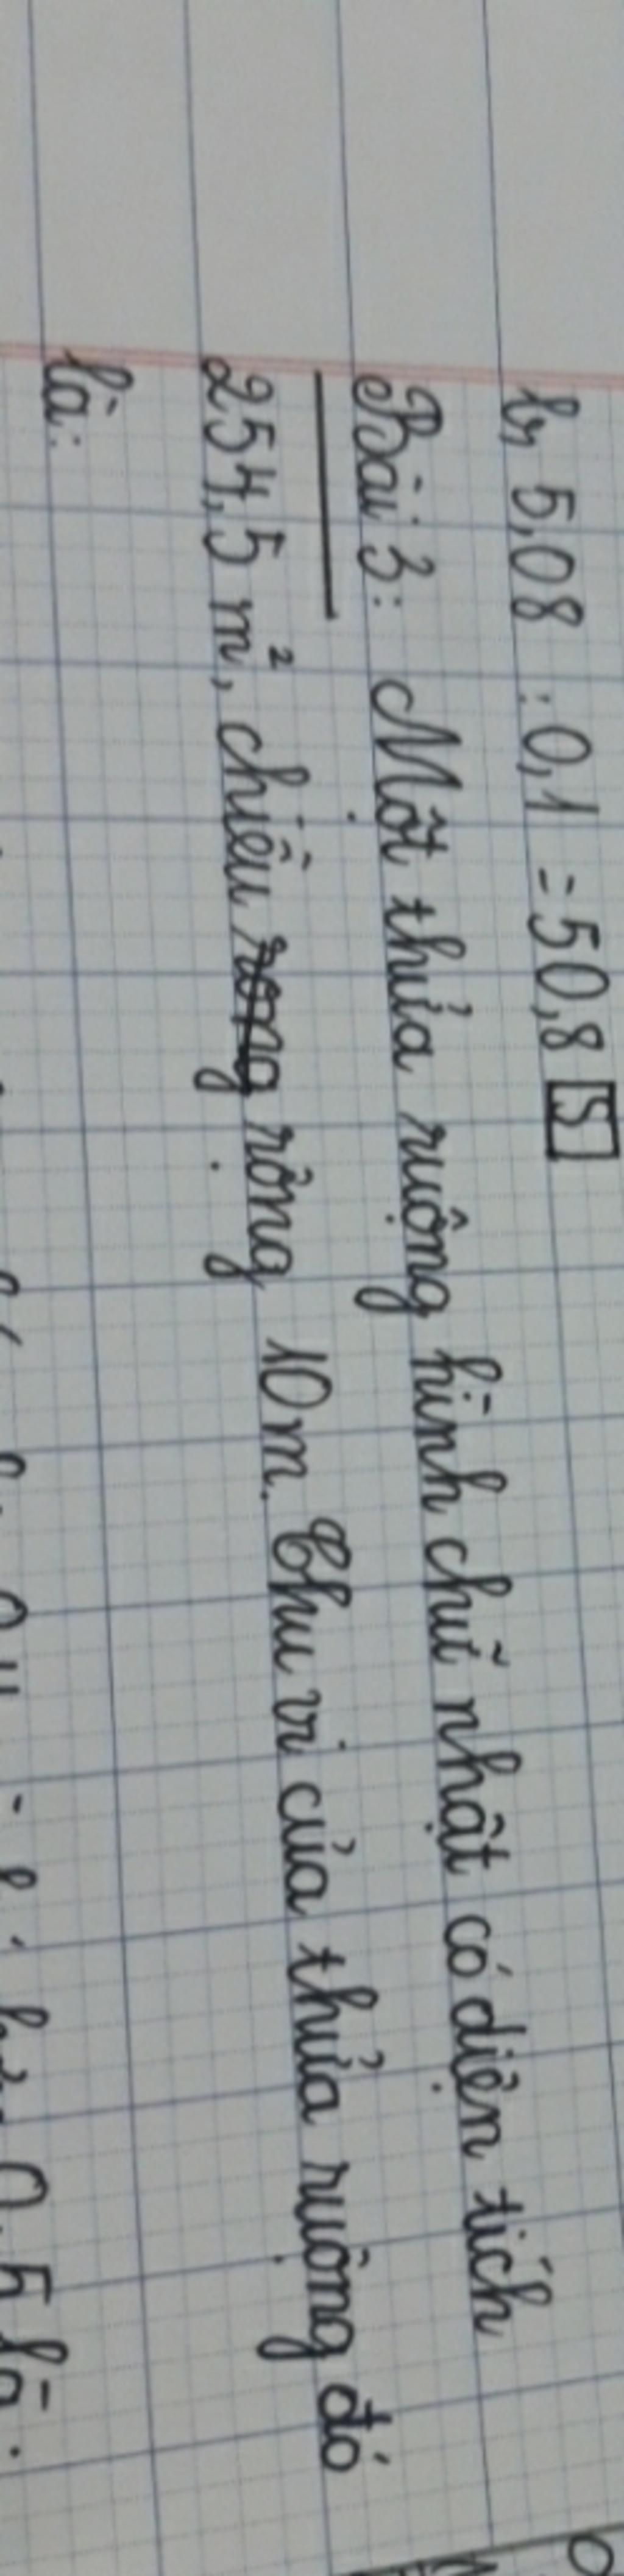 b, 5,08 : 0,1 = 50,8 S
Bài 3: Một thửa ruộng hình chữ nhật có diện tích
254,5 m², chiều rộng 10m. Chu vi của thửa ruộng đó
là: